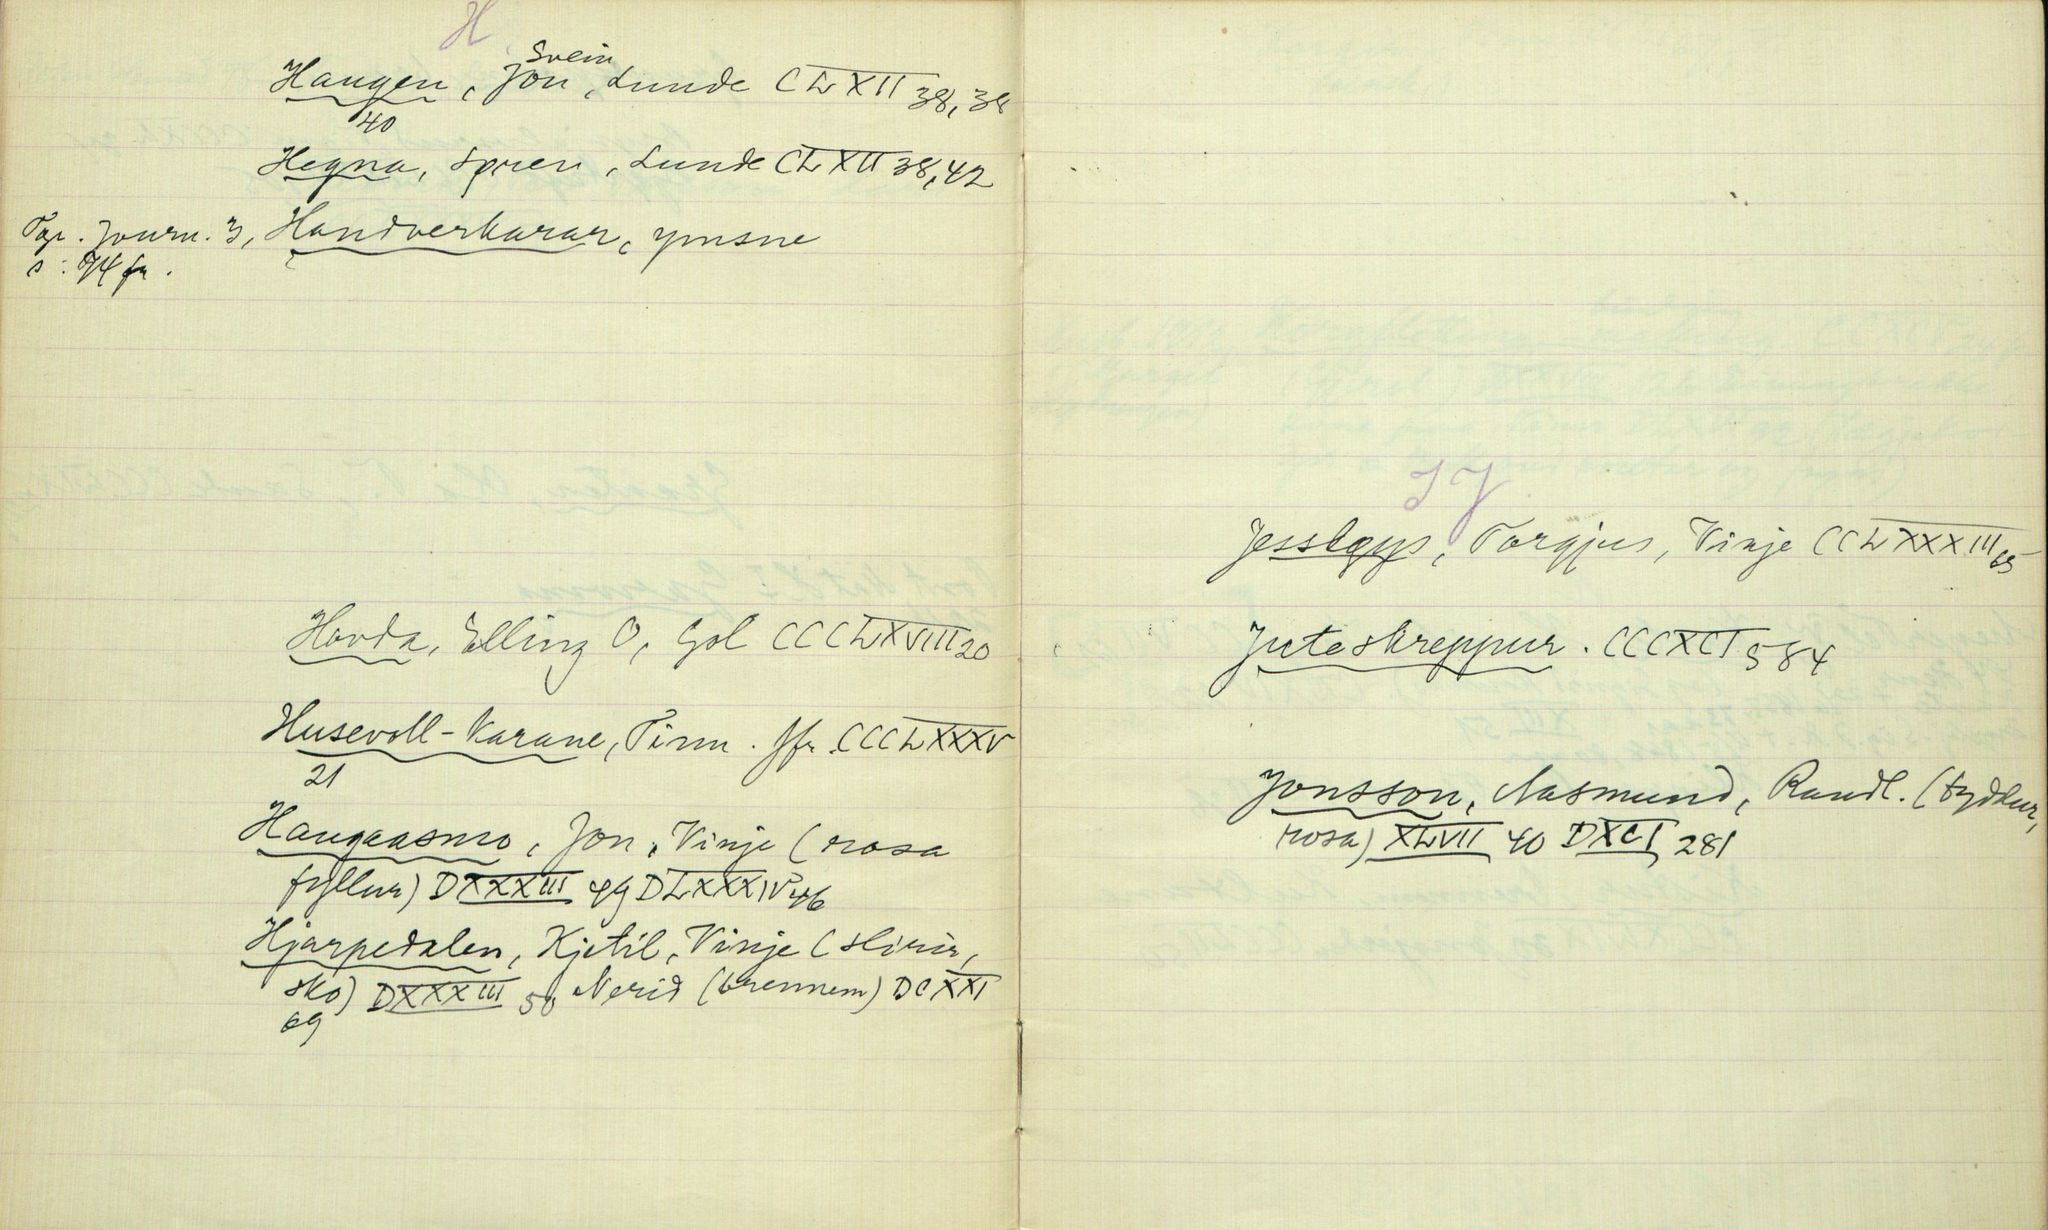 H
Svein
Haugen, Jon, Lunde CLXII 38, 38
40
Hegna, Søren, Lunde CLXII 38, 42
Top. Journ. 3, Handverkarar, ymsne
s. 74 fr.
Hovda, Elling O, Gol CCCLXVIII 20
Husevoll-Karane, Tinn. Jfr. CCCLXXXV
21
Haugaasmo, Jon, Vinje (rosa
fyllur) DXXXIII 49 DLXXXIV 46
Hjarpedalen, Kjetil, Vinje (slirir,
sko) DXXXIII 50 Nerid (brennem) DCXXI
69
I J
Jessløys, Torgjus, Vinje CCLXXXIII 65
Juteskreppur. CCCXCI 584
Jonsson, Aasmund, Raudl. (byddur,
rosa) XLVII 40 DXCI 281